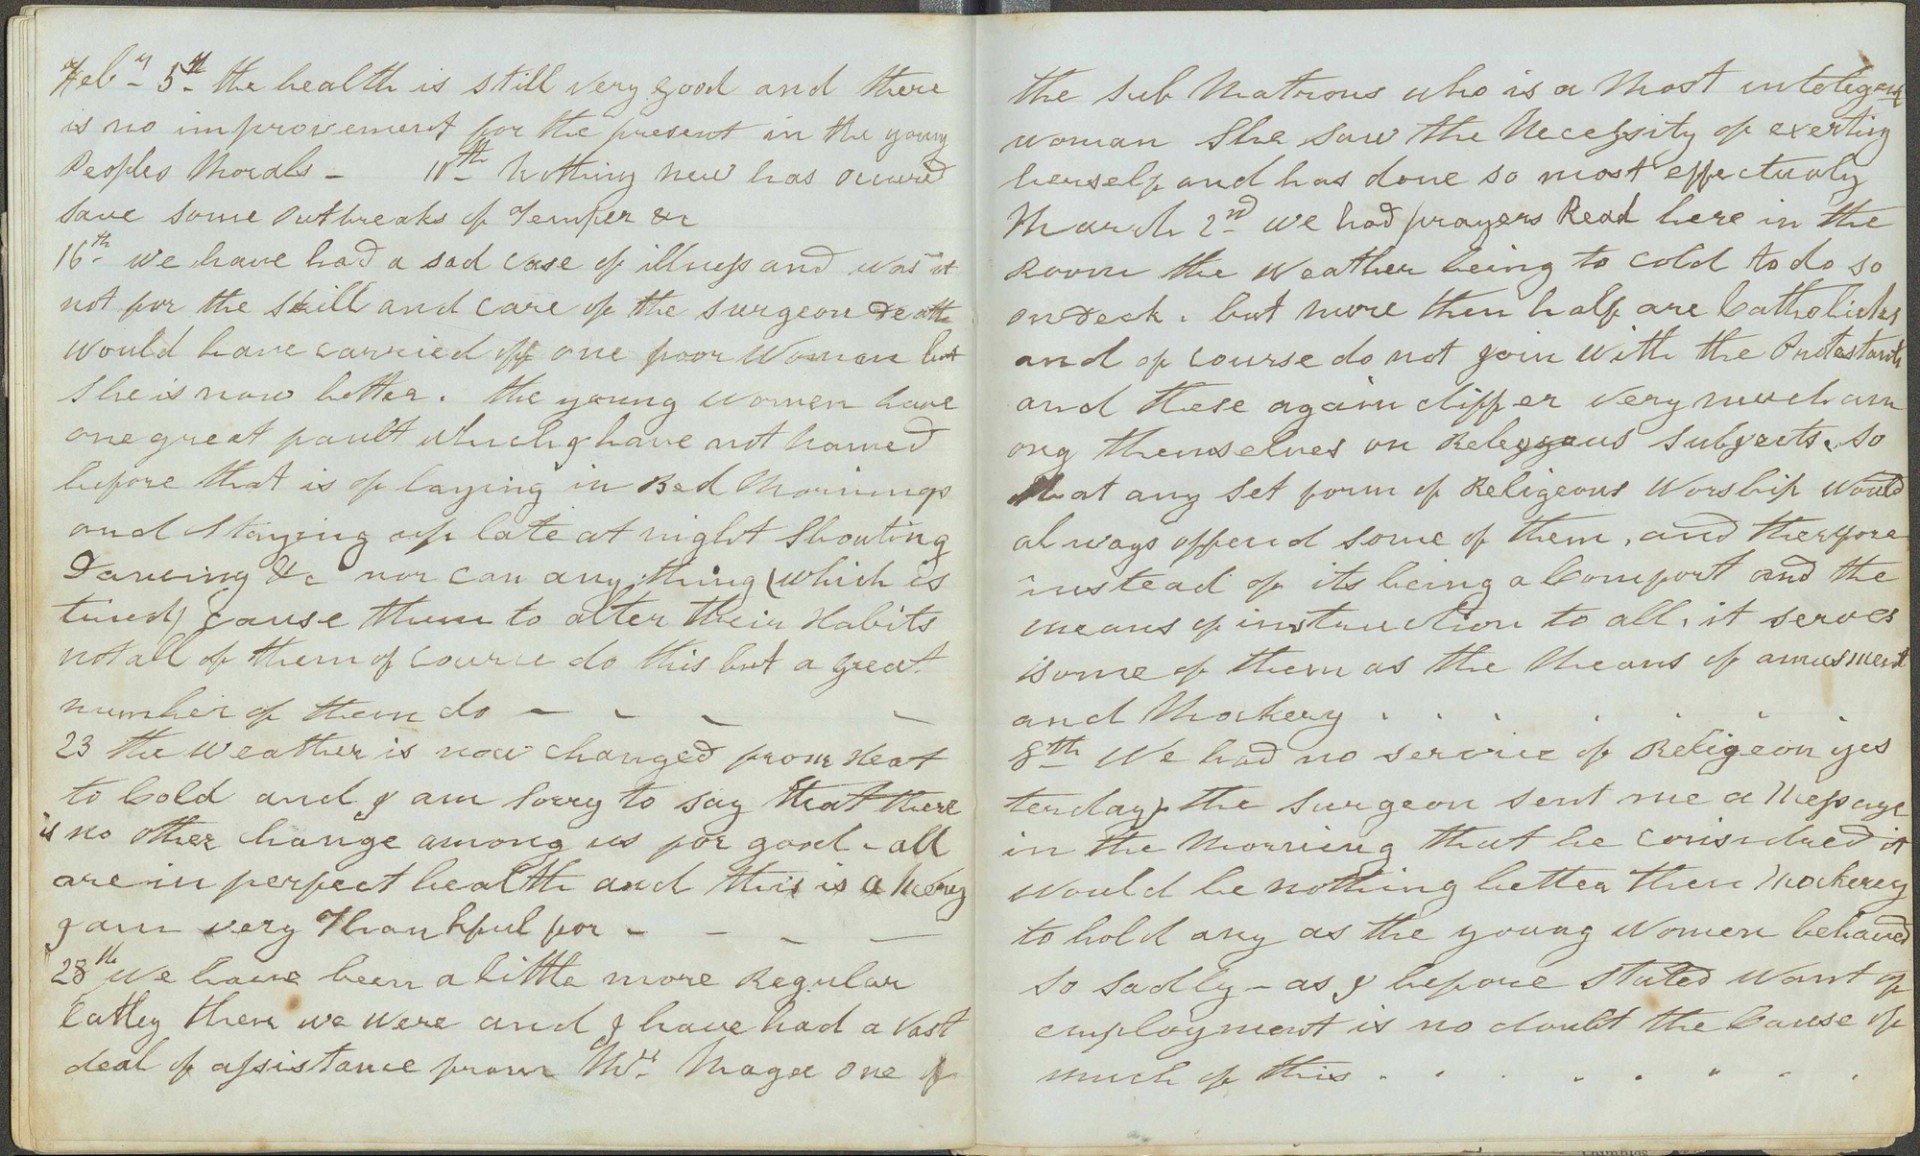 Feby 5th the health is still very good and there
is no improvement for the present in the young
Peoples Morals - 10th Nothing new has occured
save some outbreaks of Temper &c
16th We have had a sad case of illness and was it
not for the skill and care of the surgeon death
would have carried off one poor Woman but
She is now better. the young women have
one great fault which I have not named
before that is of laying in Bed Mornings
and staying up late at night Shouting
Dancing &c nor can any thing (which is
tried) cause them to alter their Habits
not all of them of course do this but a great
number of them do - - - -
23 the weather is now changed from Heat
to Cold and I am Sorry to say that there
is no other change among us for good - all
are in perfect health and this is a Mercy
I am very Thankful for - - - -
28th We have been a little more Regular
Latley then we were and I have had a Vast
deal of assistance from Mrs Magee one of
the Sub Matrons who is a Most inteligent
woman She saw the Necessity of exerting
herself and has done so most effectualy
March 2nd we had prayers Read here in the
Room the Weather being to cold to do so
on deck. but more then half are Catholicks
and of course do not join With the Protestants
and these again differ very much am
ong themselves on Relegious subjects. so
that any set form of Religeous Worship would
always offend some of them, and therefore
instead of its being a Comfort and the
means of instruction to all, it serves
some of them as the Means of amusment
and Mockery . . . . . . .
8th We had no service of Religeon yes
terday, the Surgeon sent me a Message
in the Morning that he considred it
Would be nothing better then Mockerey
to hold any as the young Women behaved
so sadly - as I before stated Want of
employment is no doubt the Cause of
much of this . . . . . . . .